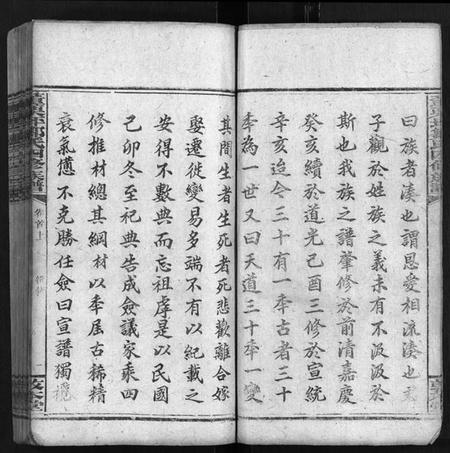 曰族者湊也謂恩愛相流湊也
子觀於姓族之義未有不汲汲於
斯也我族之譜肇修於前清嘉慶
癸亥續於道光己酉三修於宣統
辛亥迨今三十有一季古者三十
季為一世又曰天道三十季一變
其間生者生死者死悲歡離合嫁
娶遷徙變易多端不有以紀載之
安得不數典而忘祖虖是以民國
己卯冬至祀典告成僉議家乘四
修推材總其綱材以季屆古稀精
衰氣憊不克勝任僉曰宣譜獨
卷首上